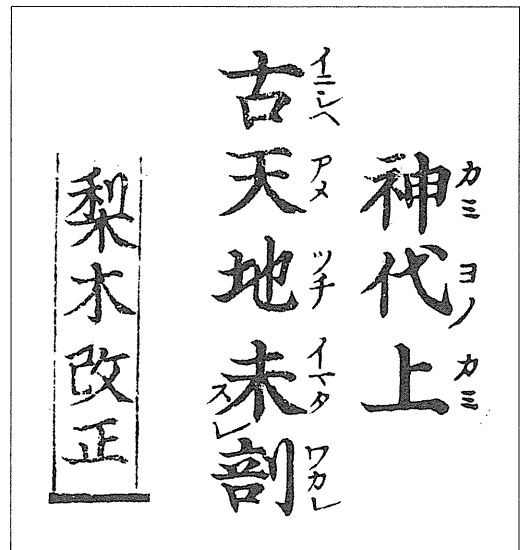 神代上
カミヨノカミ
古天地未剖
イニシヘアメツチイマタワカレ
スレ
梨木改正